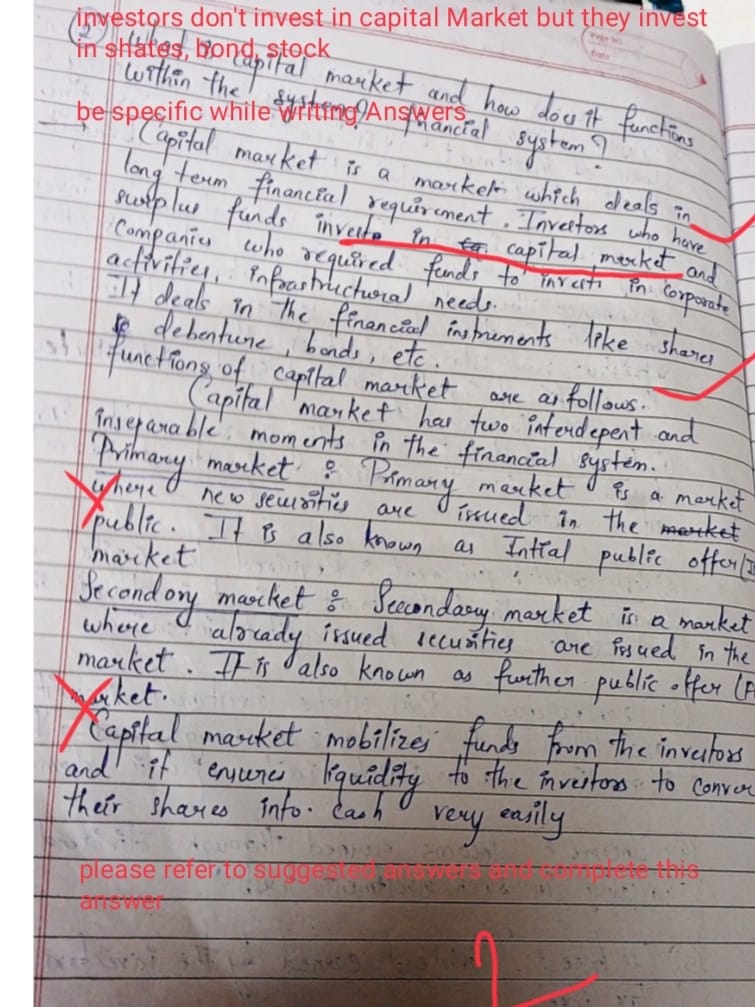 investors don't invest in capital Market but they invest
in shates, bond, stock
be specific while writing Answers
(2) What is capital market and how does it functions
within the financial system?
Capital market is a market which deals in
long term financial requirement. Investors who have
surplus funds invests in capital market and
Companies who required funds to invests in corporate
activities, infrastructural needs.
It deals in the financial instruments like shares
debenture, bonds, etc.
functions of capital market are as follows.
Capital market has two interdepent and
inseparable moments in the financial system.
Primary market : Primary market is a market
where new securities are issued in the market
public. It is also known as Intial public offer (I
market
Secondory market : Seecondary market is a market
where already issued securities are issued in the
market. It is also known as further public offer (F
market.
Capital market mobilizes funds from the investors
and it ensures liquidity to the investors to conver
their shares into cash very easily
please refer to suggested answers and complete this
answer
2